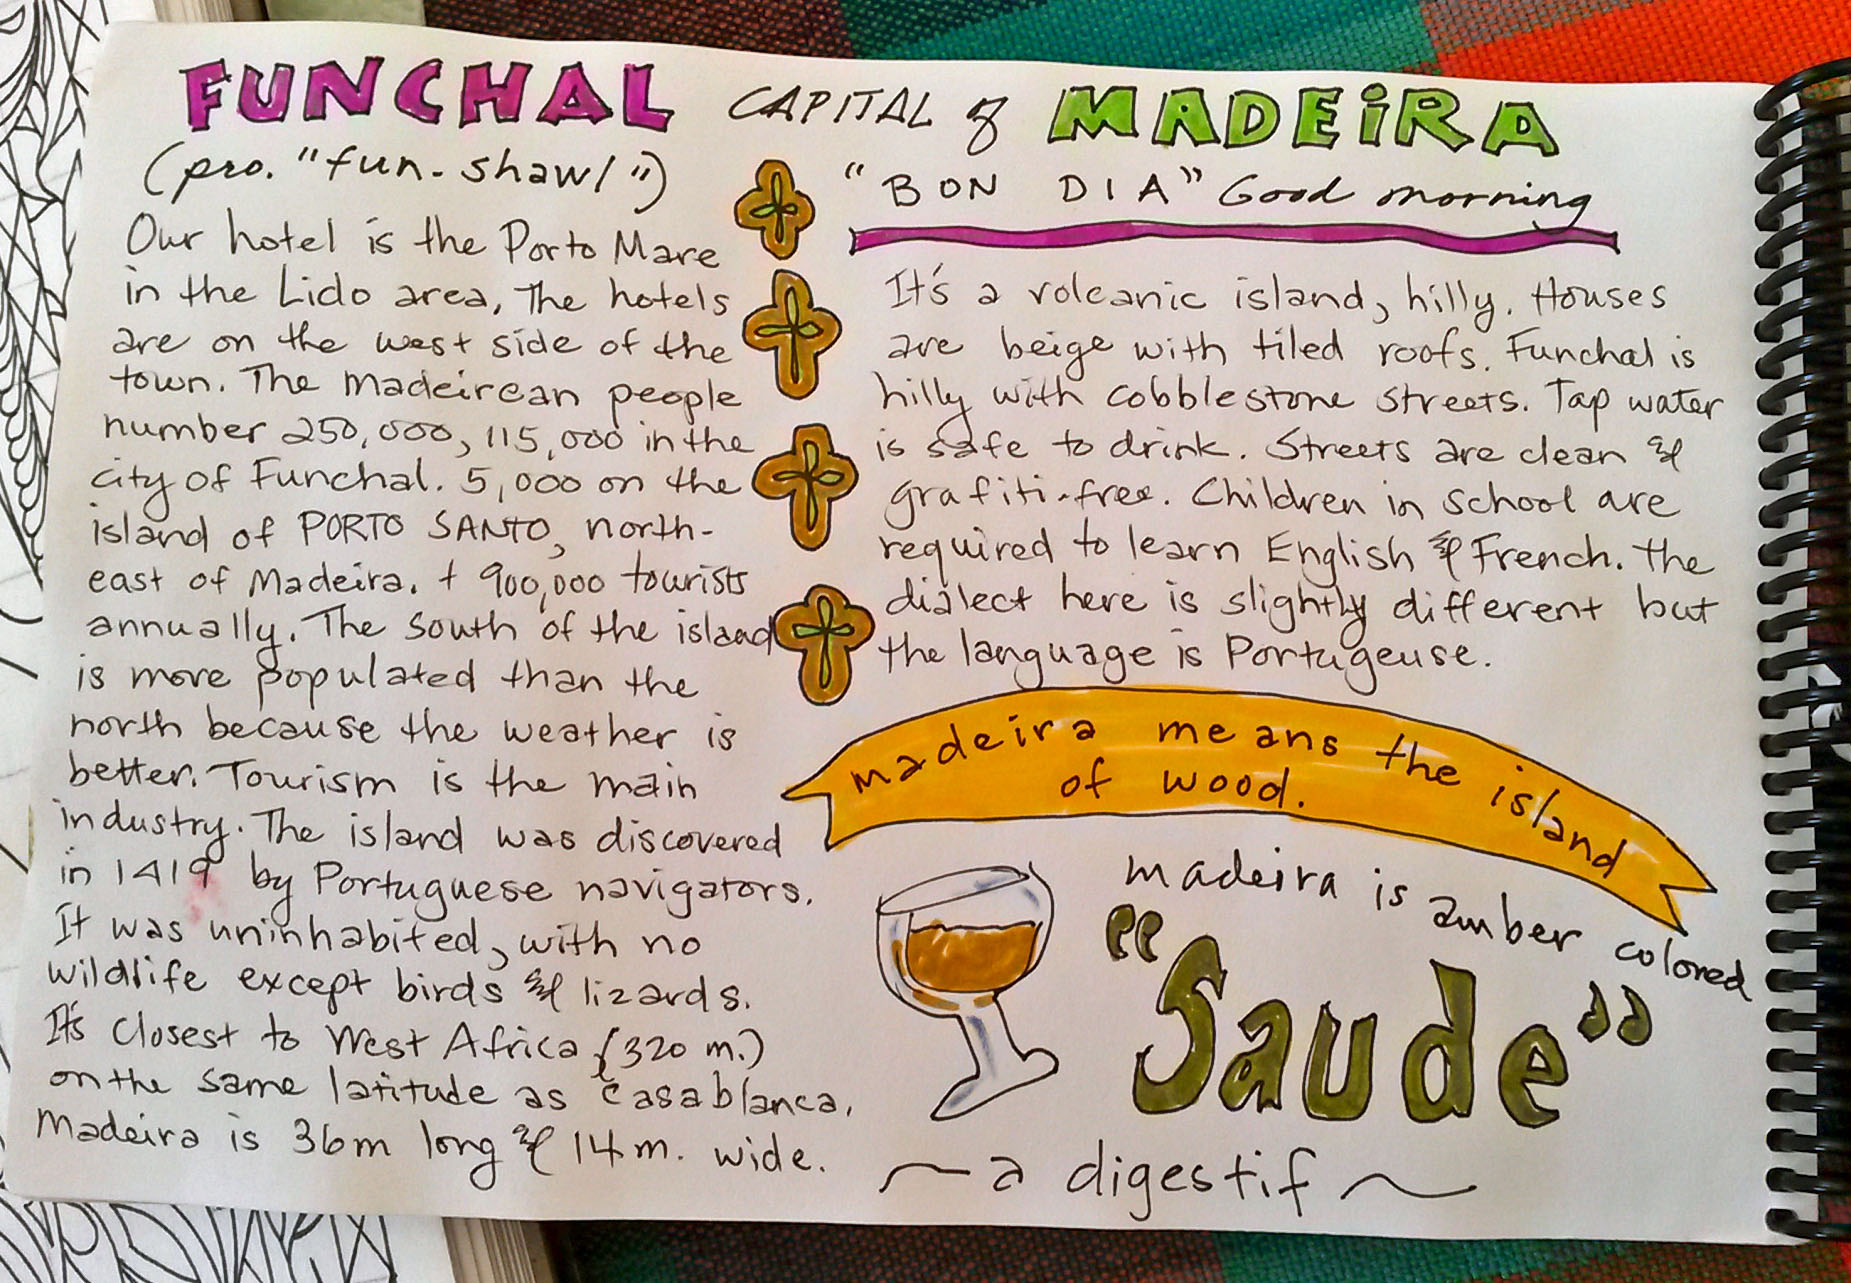 FUNCHAL CAPITAL of MADEIRA
(pro. "fun-shawl")
"BON DIA" Good morning
Our hotel is the Porto Mare
in the Lido area, The hotels
are on the west side of the
town. The madeirean people
number 250,000, 115,000 in the
city of Funchal. 5,000 on the
island of PORTO SANTO, north-
east of Madeira. + 900,000 tourists
annually. The South of the island
is more populated than the
north because the weather is
better. Tourism is the main
industry. The island was discovered
in 1419 by Portuguese navigators.
It was uninhabited, with no
wildlife except birds & lizards.
It's closest to West Africa (320 m.)
on the same latitude as Casablanca.
Madeira is 36m long & 14m. wide.
It's a volcanic island, hilly. Houses
are beige with tiled roofs. Funchal is
hilly with cobblestone streets. Tap water
is safe to drink. Streets are clean &
grafiti-free. Children in school are
required to learn English & French. The
dialect here is slightly different but
the language is Portugeuse.
madeira means the island
of wood.
madeira is amber colored
"Saude"
~a digestif~